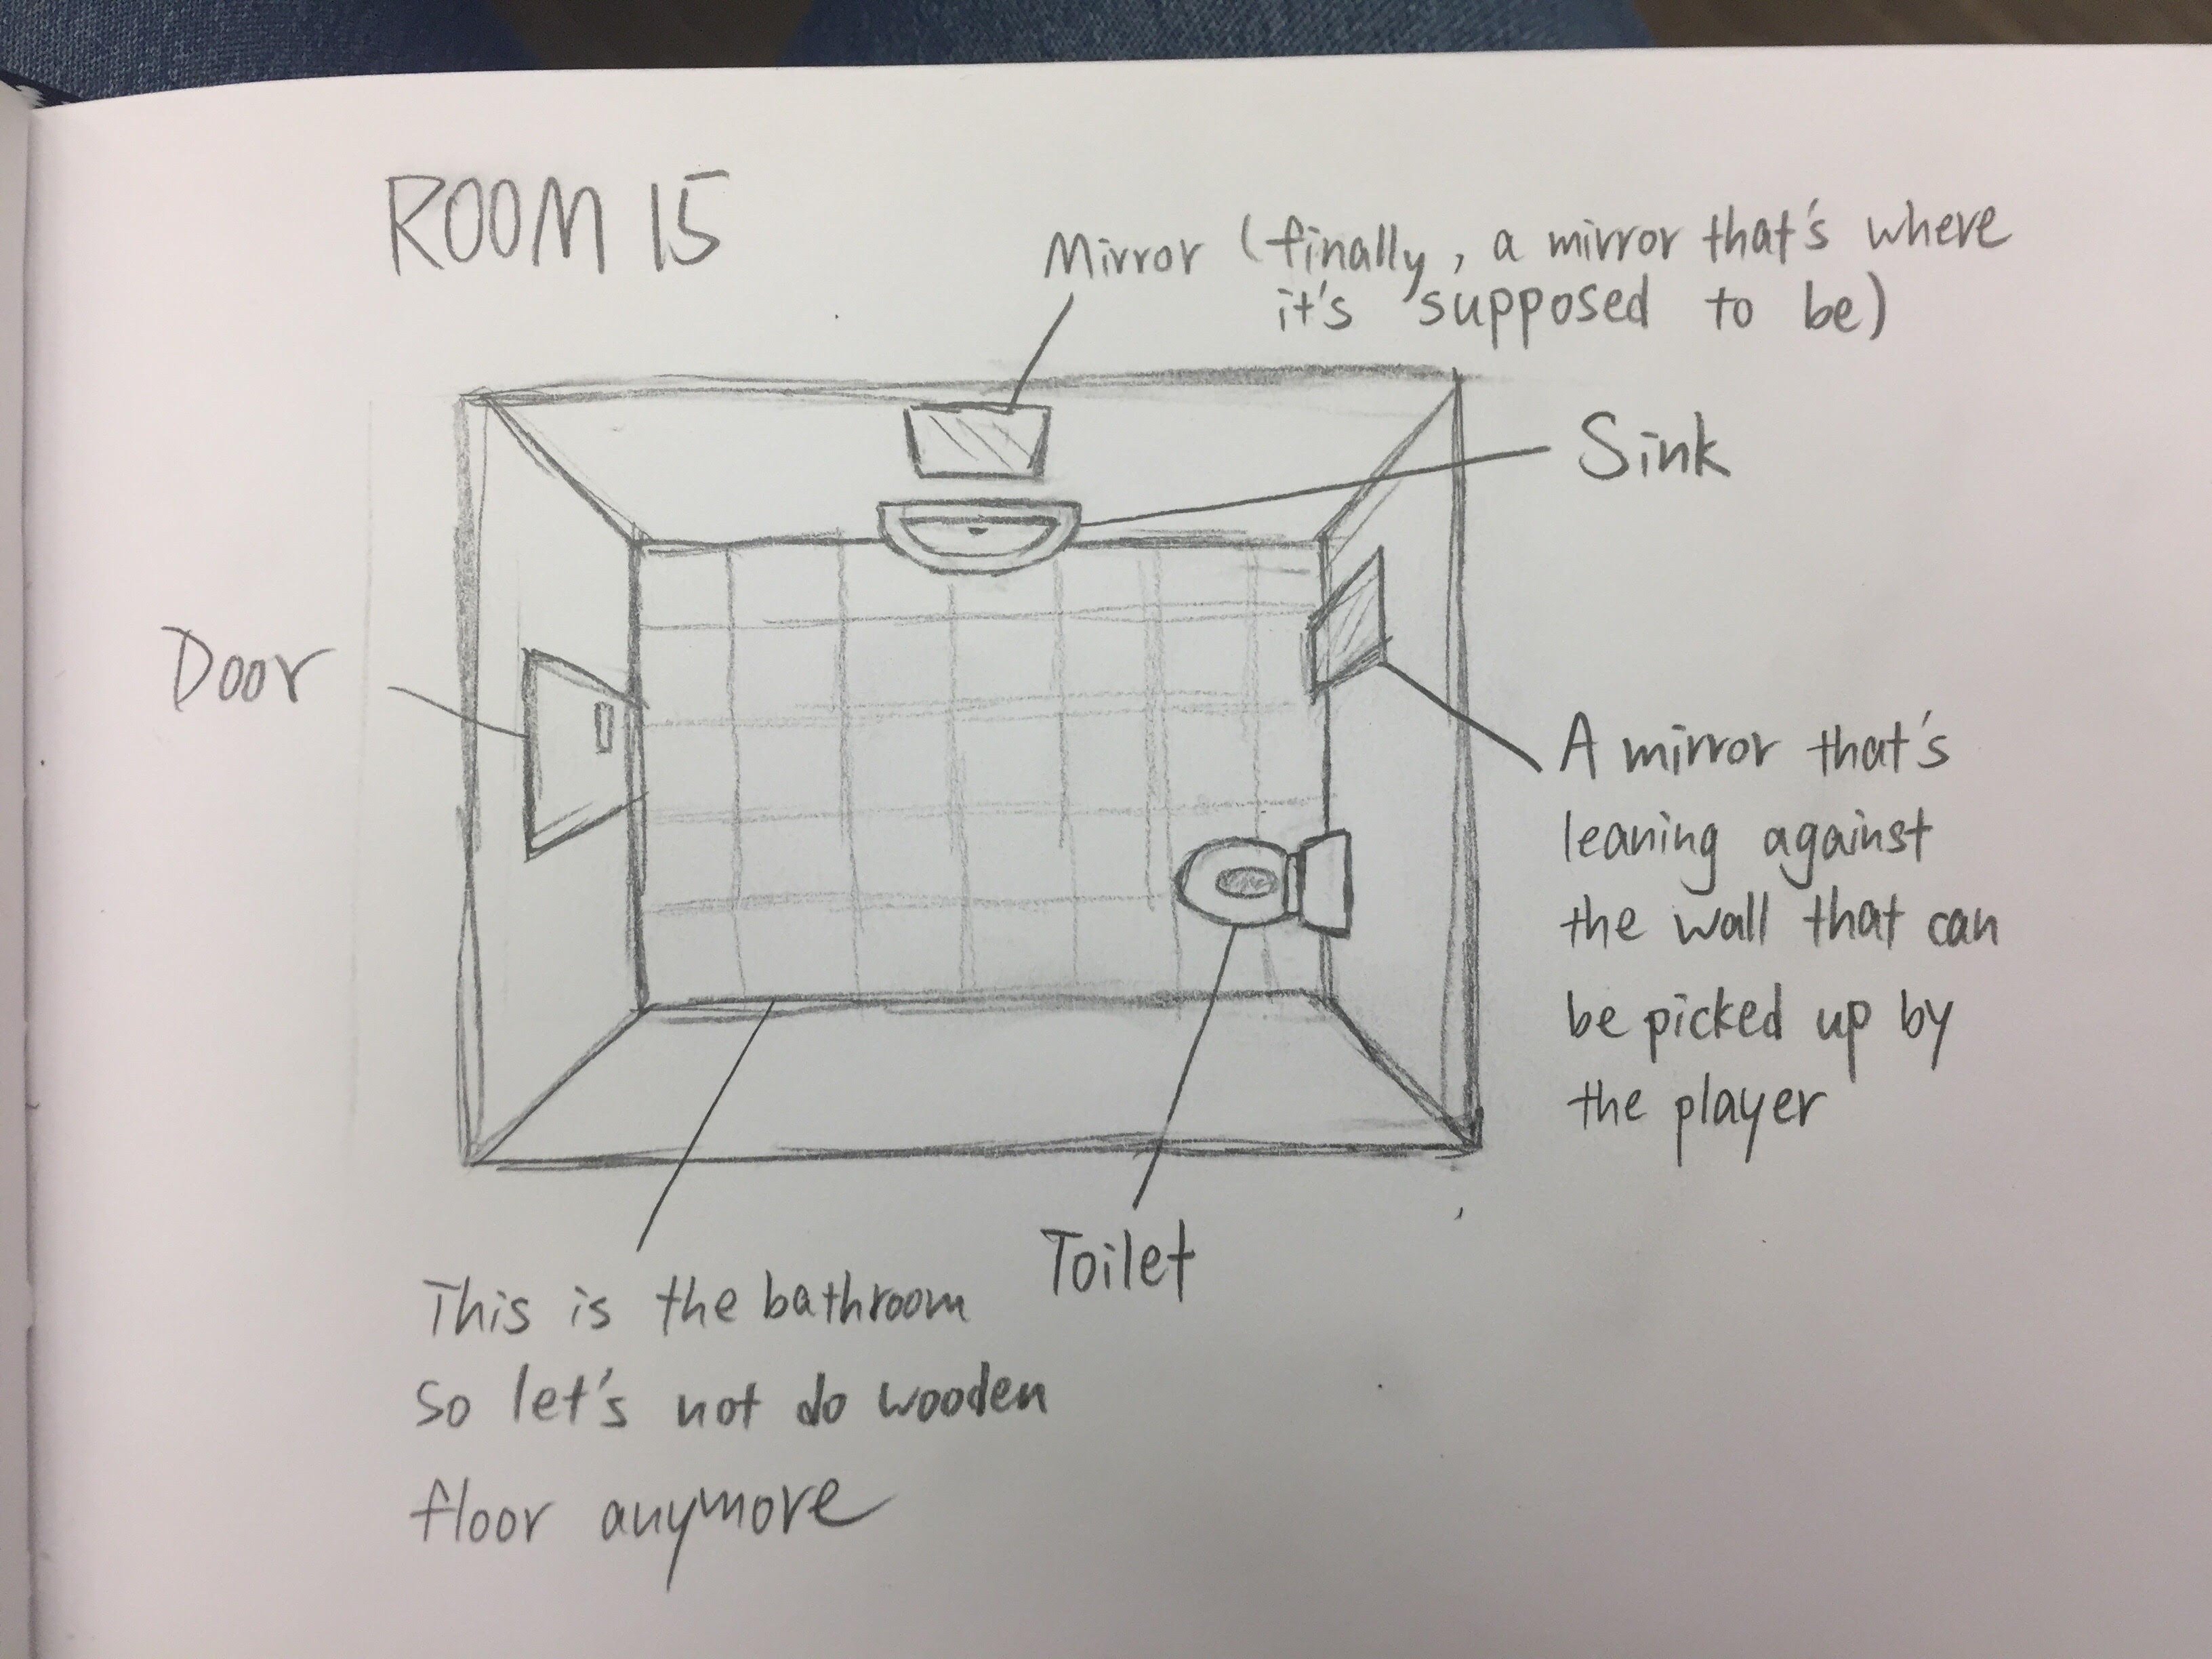 ROOM 15
Mirror (finally, a mirror that's where
it's supposed to be)
Sink
Door
A mirror that's
leaning against
the wall that can
be picked up by
the player
Toilet
This is the bathroom
so let's not do wooden
floor anymore